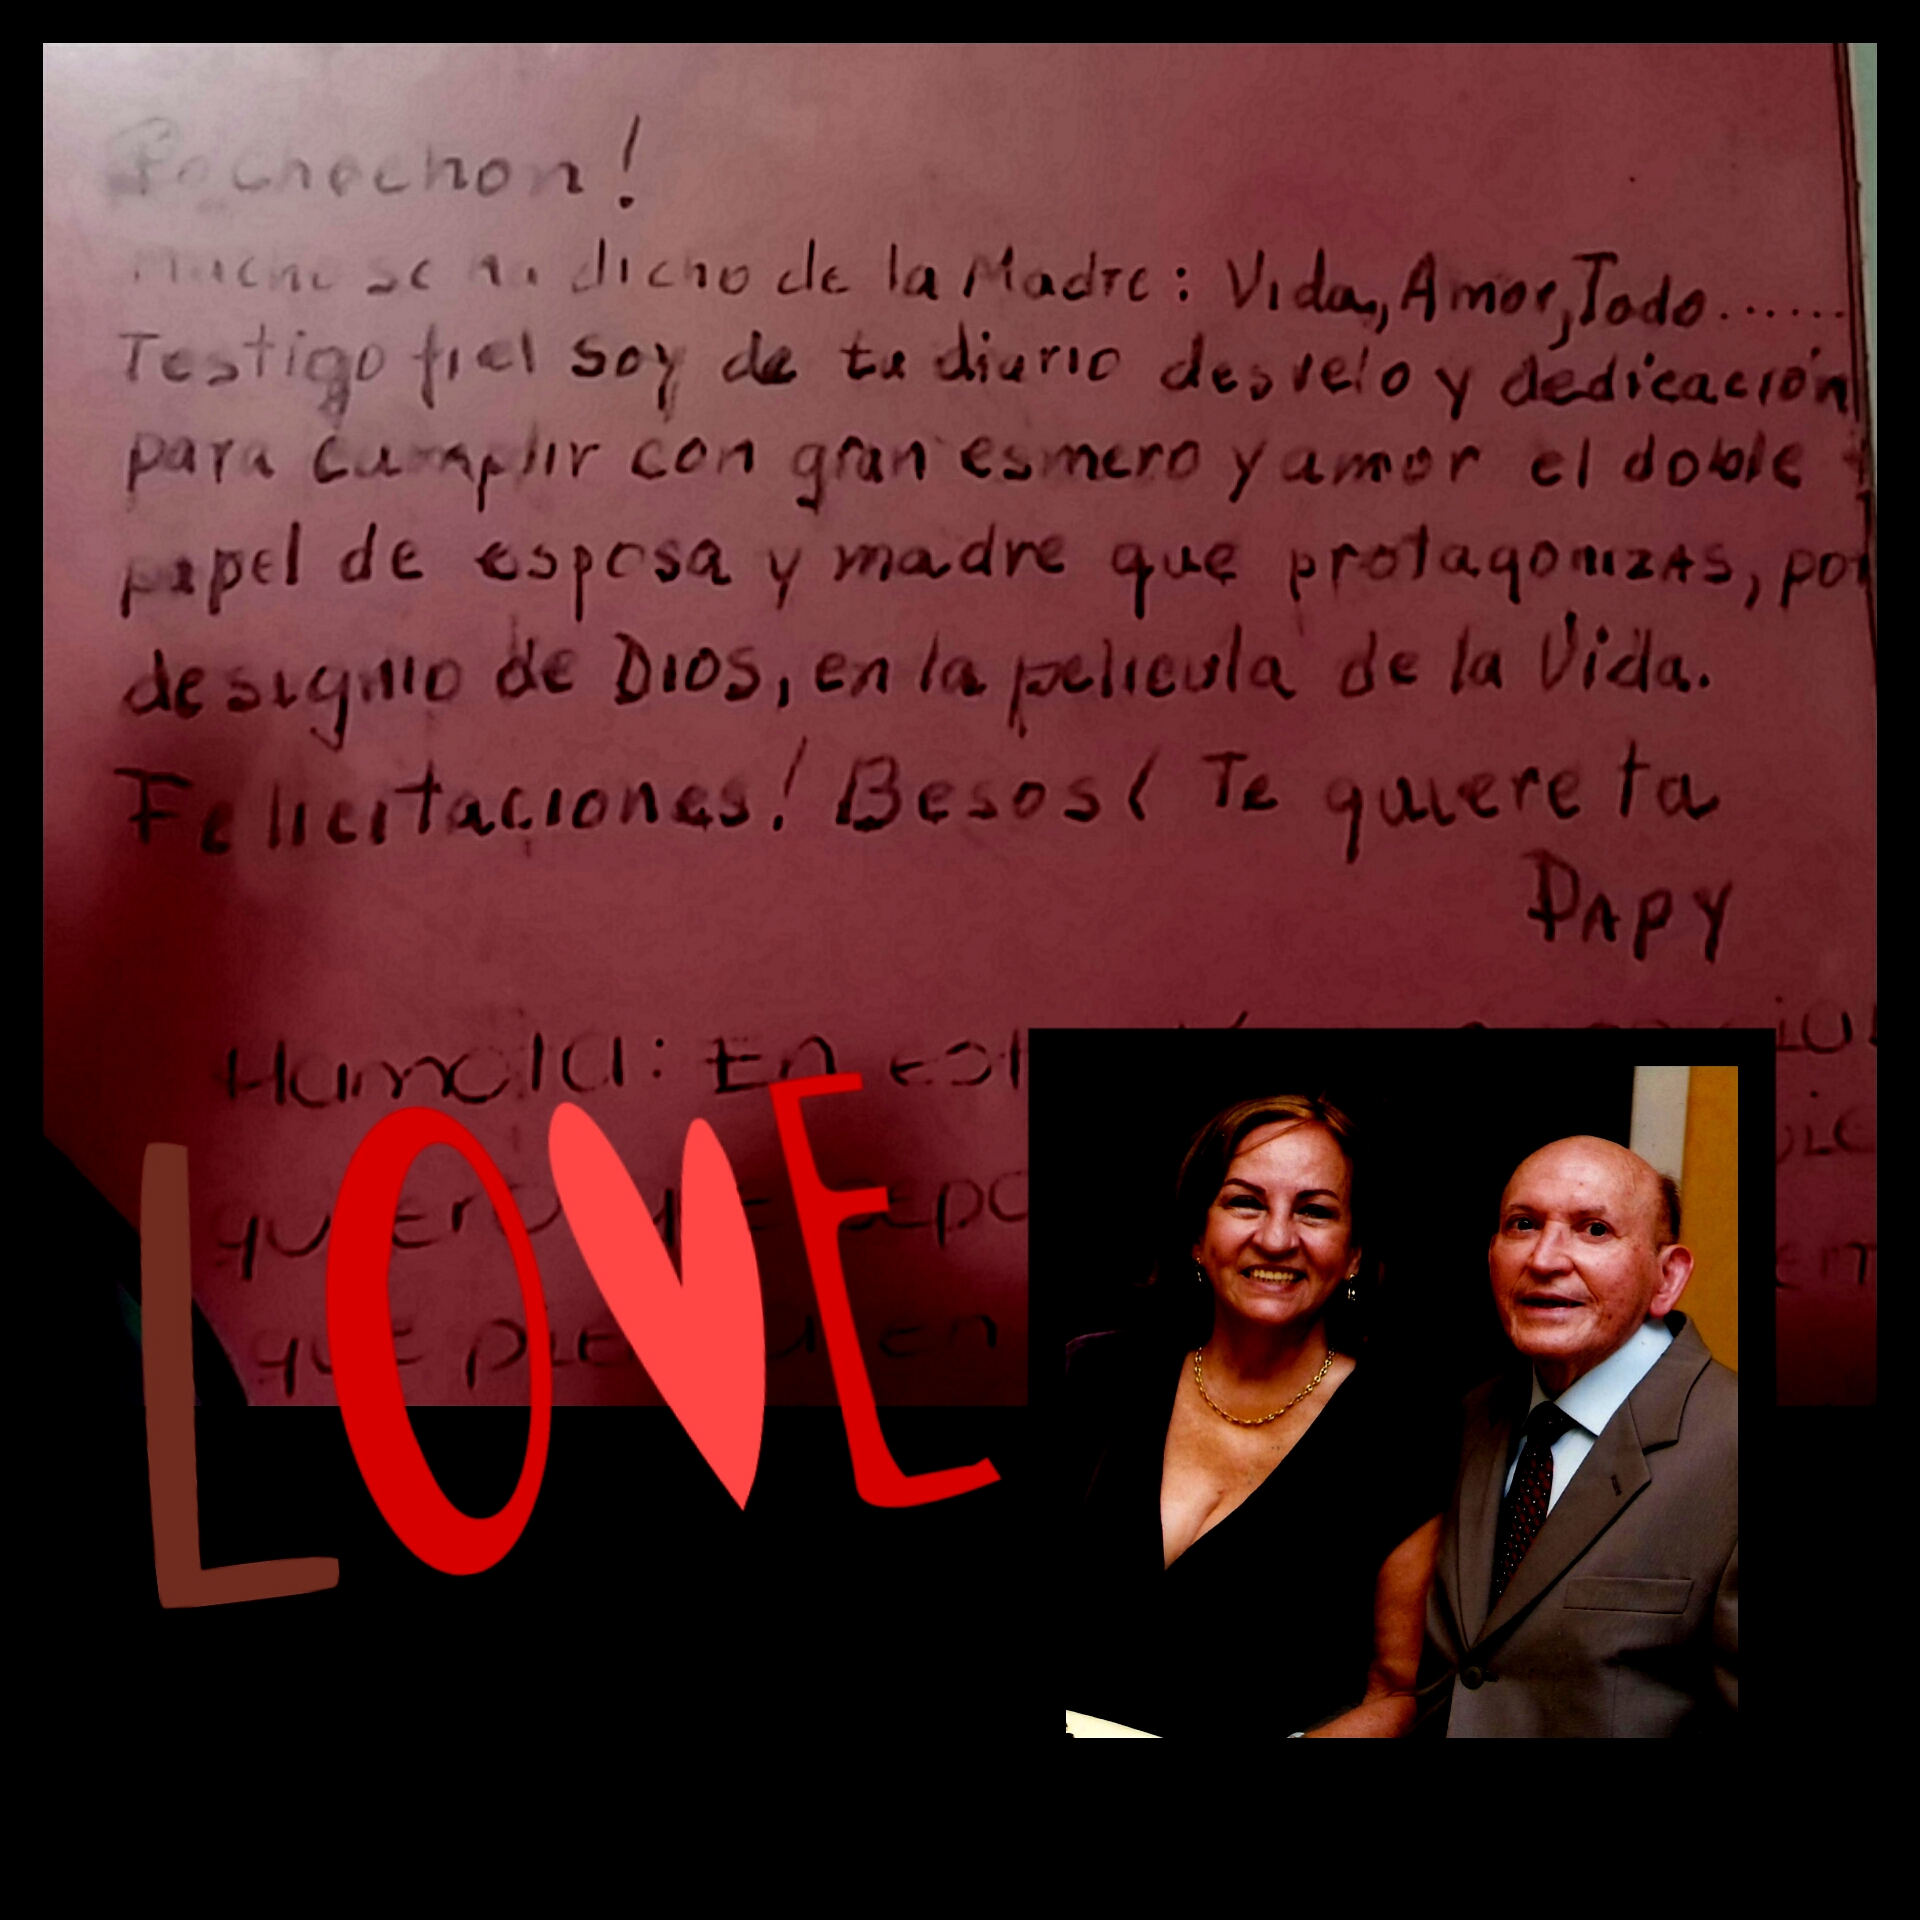 Pochochon!
Mucho se ha dicho de la Madre: Vida, Amor, Todo......
Testigo fiel soy de tu diario desvelo y dedicación
para cumplir con gran esmero y amor el doble
papel de esposa y madre que protagonizas, por
designio de DIOS, en la pelicula de la Vida.
Felicitaciones! Besos! Te quiere tu
PAPY
Hamola: En est
quiero que apo
que pie en
LOVE